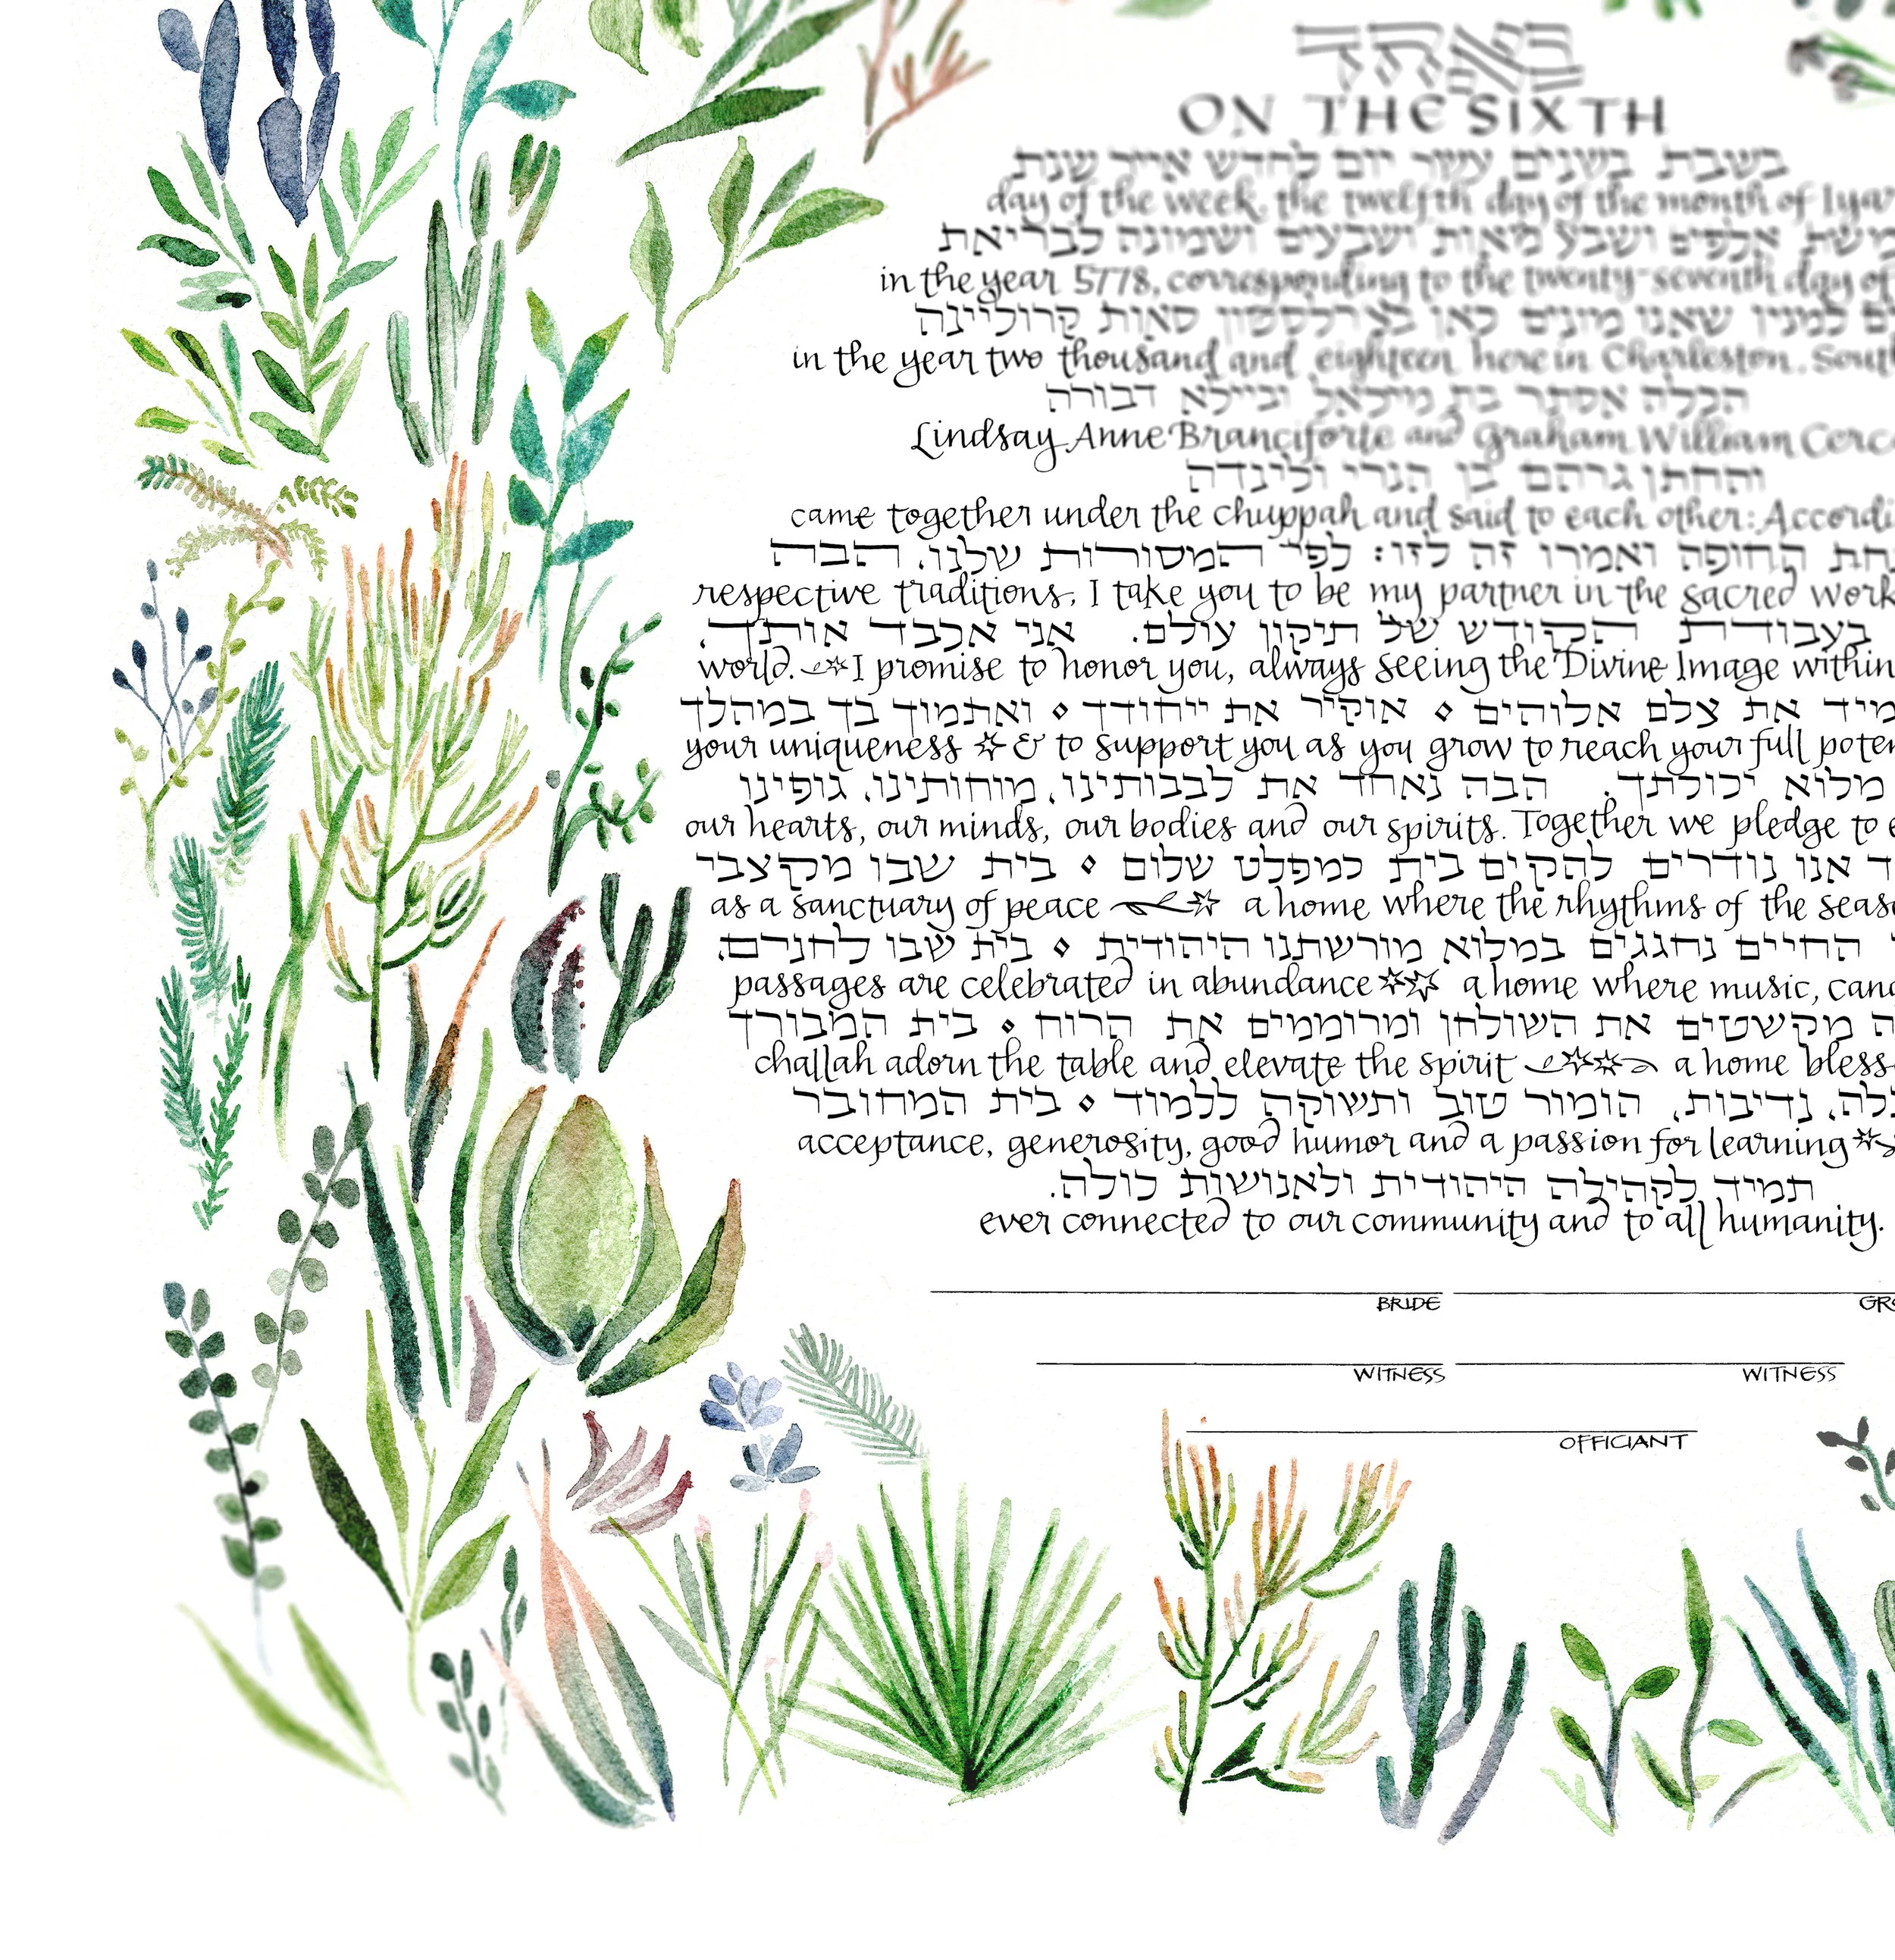 ON THE SIXTH
בשבת בשנים עשר יום לחדש אייר שנת
day of the week, the twelfth day of the month of Iyar
אלפים ושבע מאות ושבעים ושמונה לבריאת
in the year 5778, corresponding to the twenty-seventh day of
למנין שאנו מונים כאן
in the year two thousand and eighteen here in Charleston, South
הכלה אסתר בת
Lindsay Anne Branciforte and Graham William
והחתן גרהם בן הנרי ולינדה
came together under the chuppah and said to each other: Accordi
החופה ואמרו זה לזו: לפי המסורות שלנו, הבה
respective traditions, I take you to be my partner in the sacred work
בעבודת הקודש של תיקון עולם. אני אכבד אותך,
world. I promise to honor you, always seeing the Divine Image within
את צלם אלוהים ⋄ אוקיר את ייחודך ⋄ ואתמוך בך במהלך
your uniqueness & to support you as you grow to reach your full poten
מלוא יכולתך. הבה נאחד את לבבותינו, מוחותינו, גופינו
our hearts, our minds, our bodies and our spirits. Together we pledge to e
ד אנו נודרים להקים בית כמפלט שלום ⋄ בית שבו מקצבי
as a sanctuary of peace a home where the rhythms of the seaso
החיים נחגגים במלוא מורשתנו היהודית ⋄ בית שבו לחנרם,
passages are celebrated in abundance a home where music, cand
ה מקשטים את השולחן ומרוממים את הרוח ⋄ בית המבורך
challah adorn the table and elevate the spirit a home bless
בלה, נדיבות, הומור טוב ותשוקה ללמוד ⋄ בית המחובר
acceptance, generosity, good humor and a passion for learning
תמיד לקהילה היהודית ולאנושות כולה.
ever connected to our community and to all humanity.
BRIDE GRO
WITNESS WITNESS
OFFICIANT